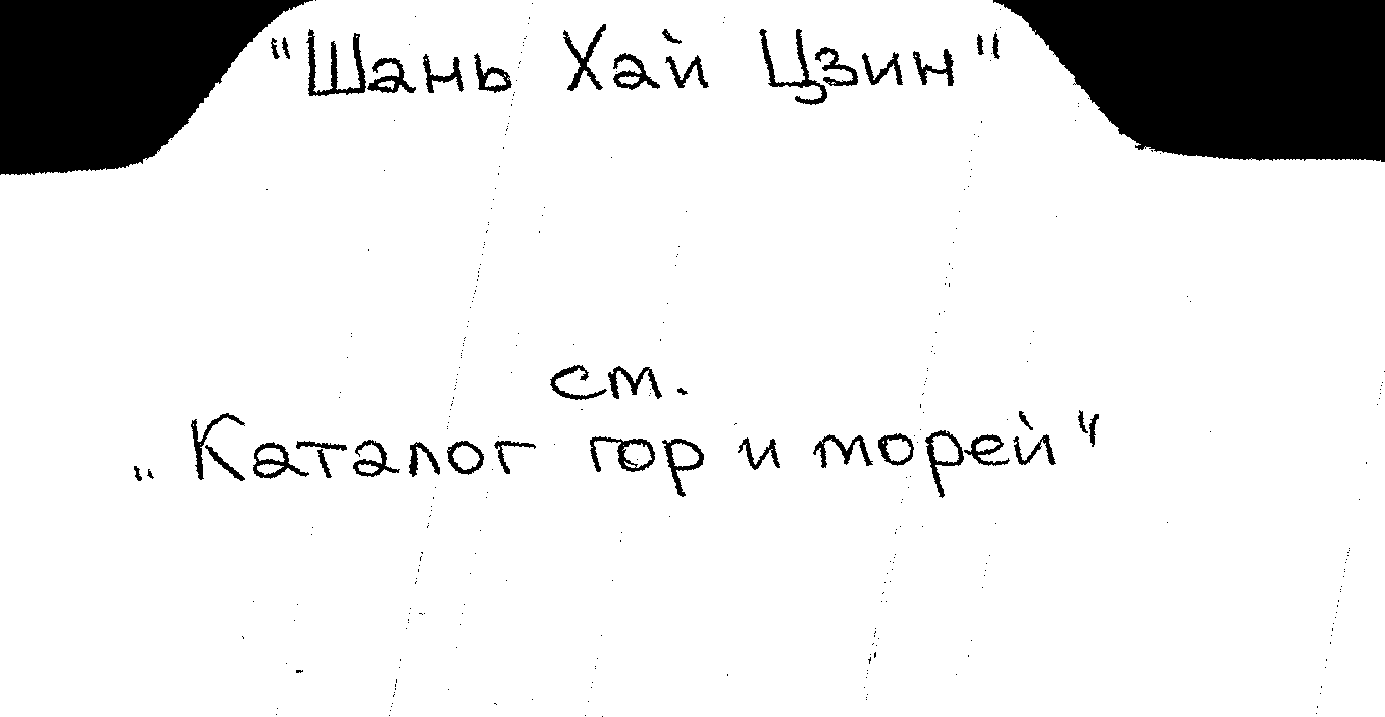 "Шань Хай Цзин"
ст.
„Каталог гор и морей"